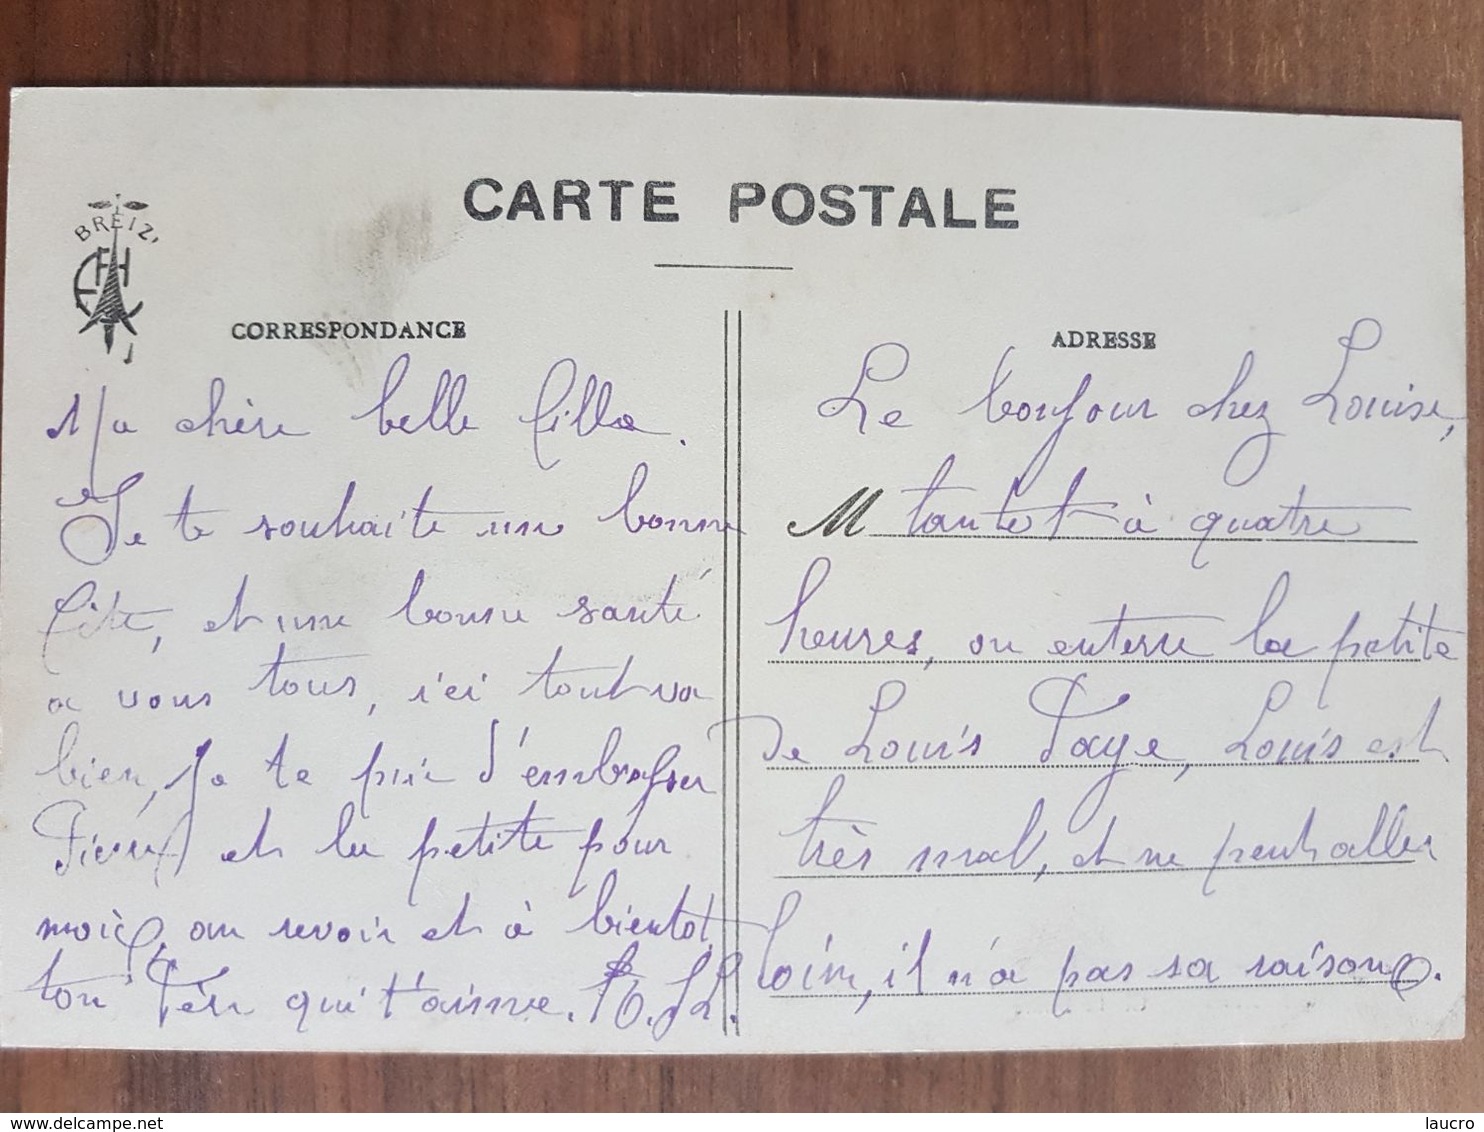 CARTE POSTALE
BREIZ
CORRESPONDANCE
Ma chère belle fille.
Je te souhaite une bonne
fête, et une bonne santé
a vous tous, ici tout va
bien, Je te prie d'embrasser
et la petite pour
moi, au revoir et à bientot
ton Père qui t'aime.
ADRESSE
Le bonjour chez Louise,
M tantot à quatre
heures, on enterre la petite
de Louis Faye, Louis est
très mal, et ne peut aller
loin, il n'a pas sa raison.
delcampe.net
laucro